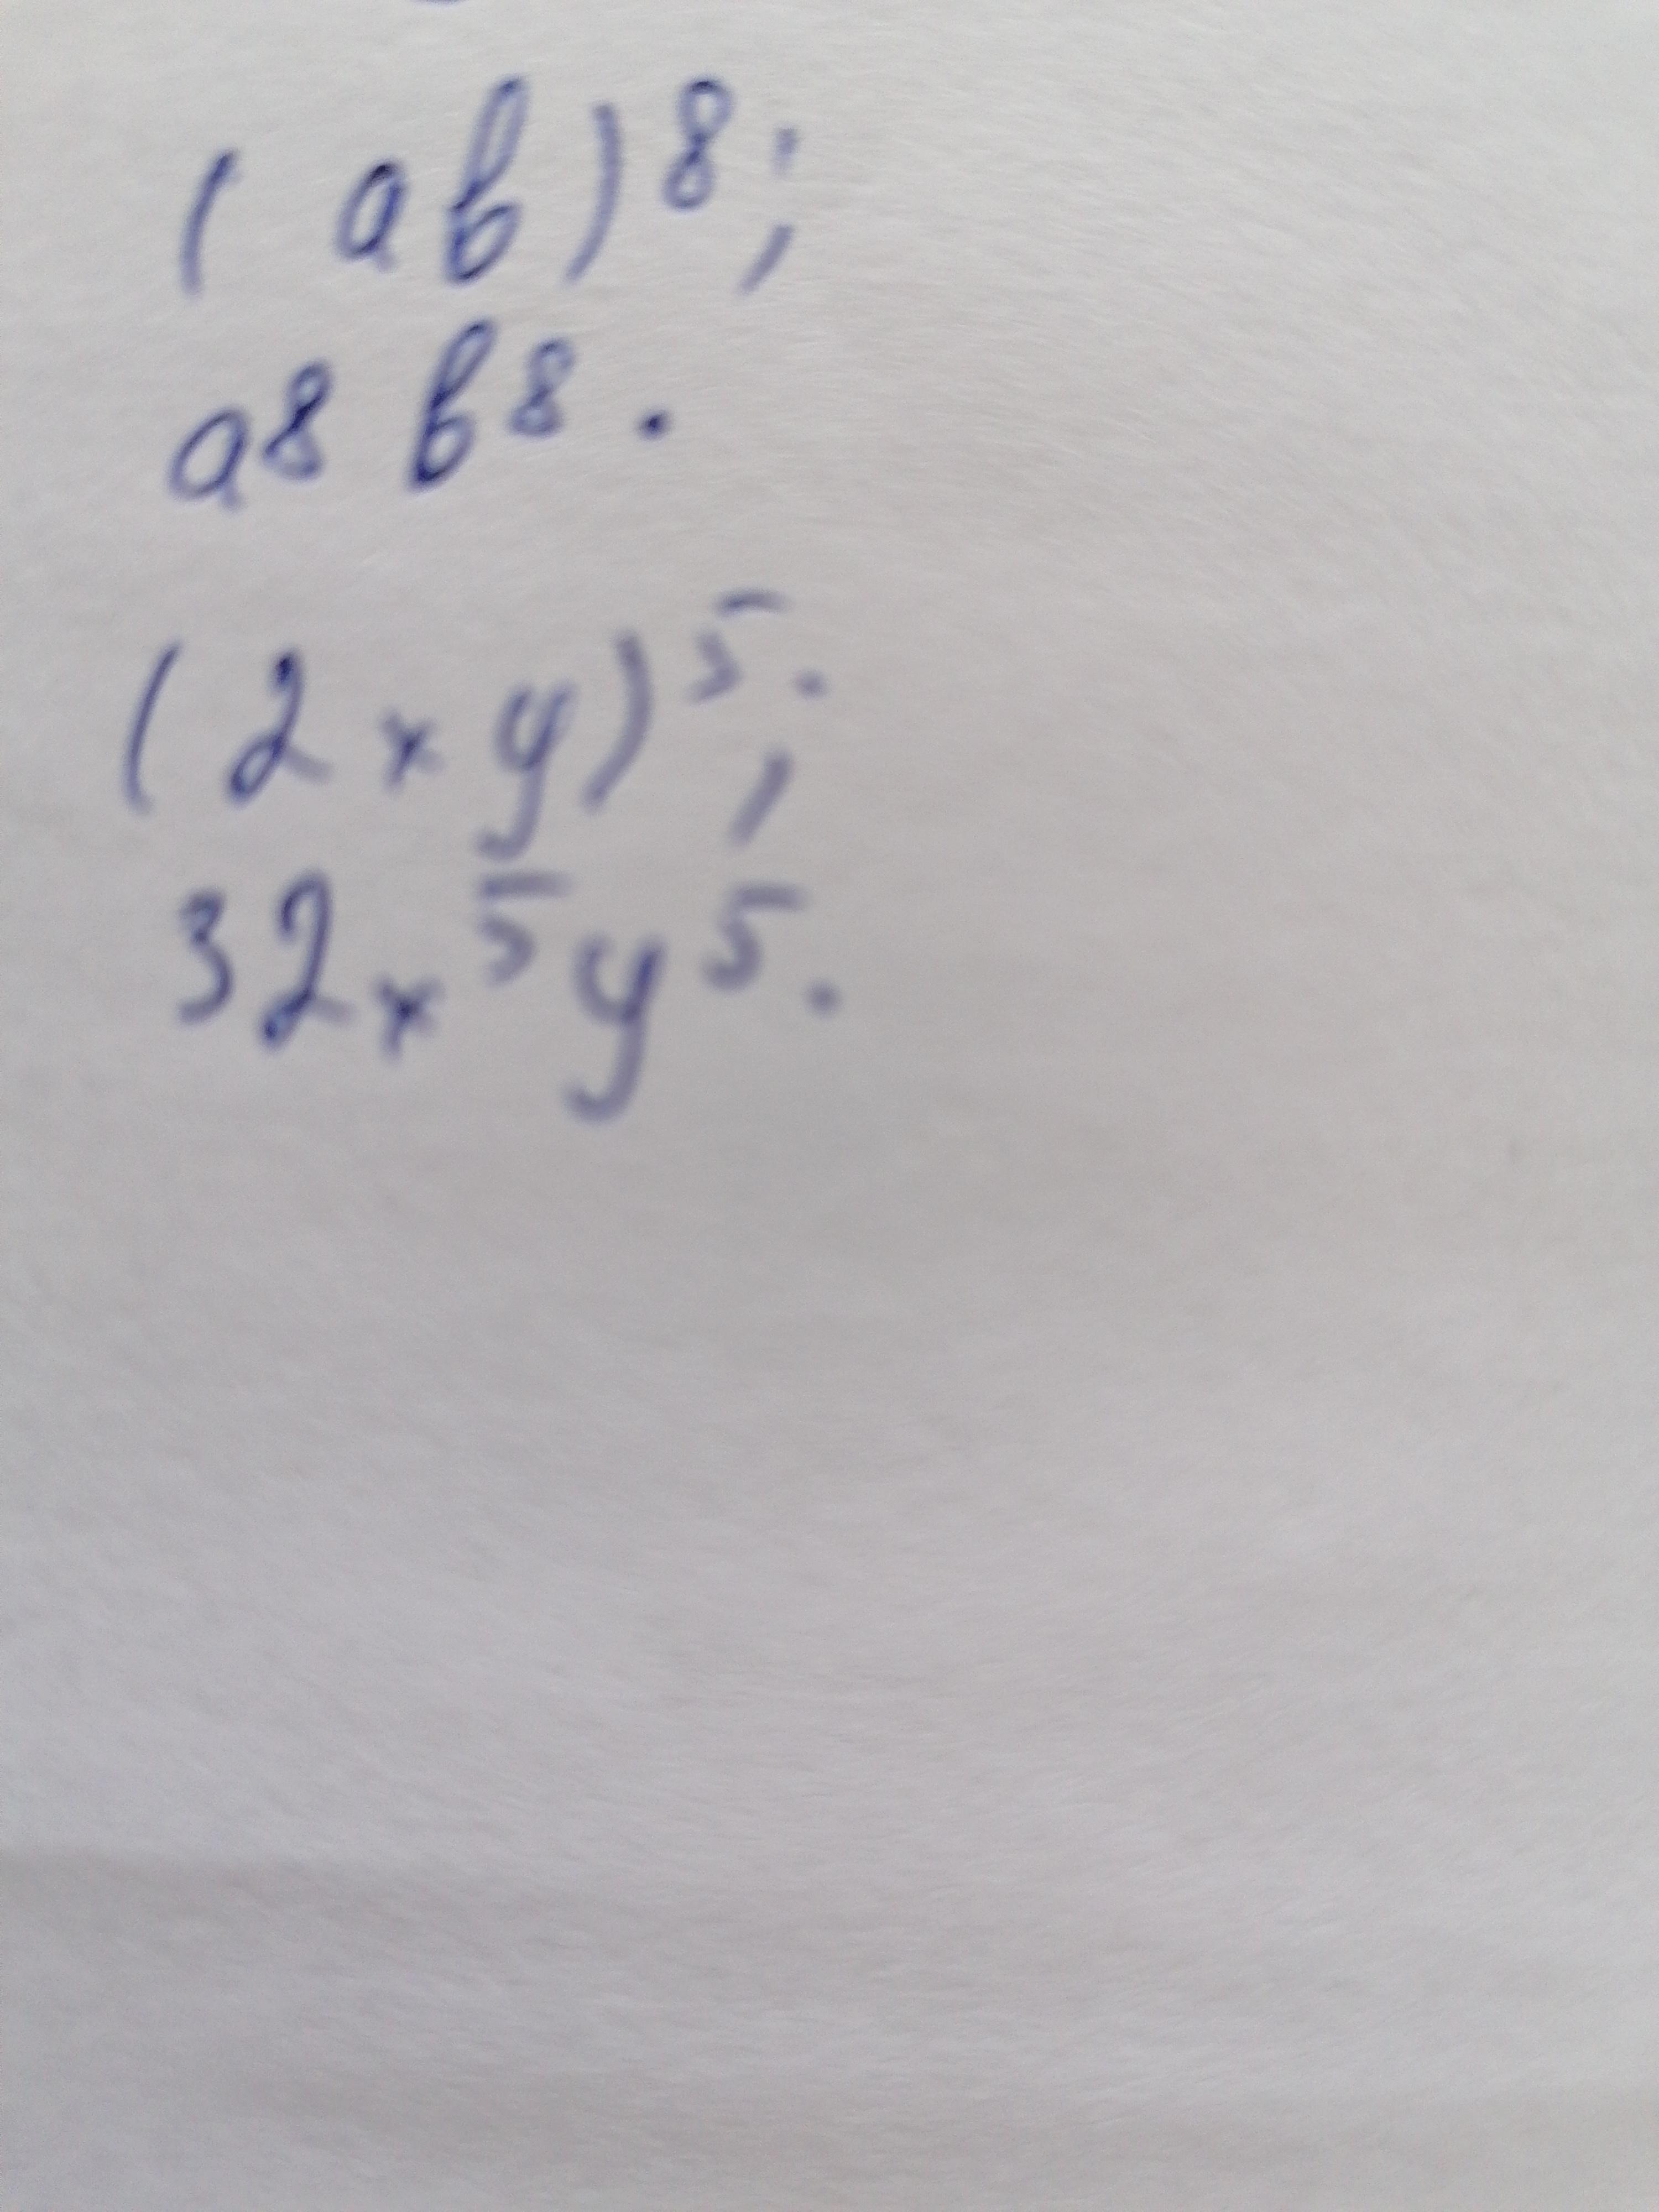 (ab)⁸;
a⁸ b⁸.
(2xy)⁵;
32x⁵y⁵.